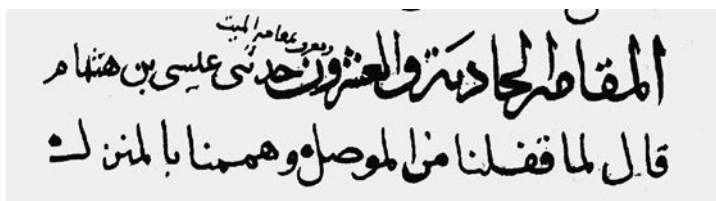 وتعرف بمقامة الميت
المقامة الحادية والعشرون حدثنى عيسى بن هشام
قال لما قفلنا من الموصل وهممنا بالمنزل